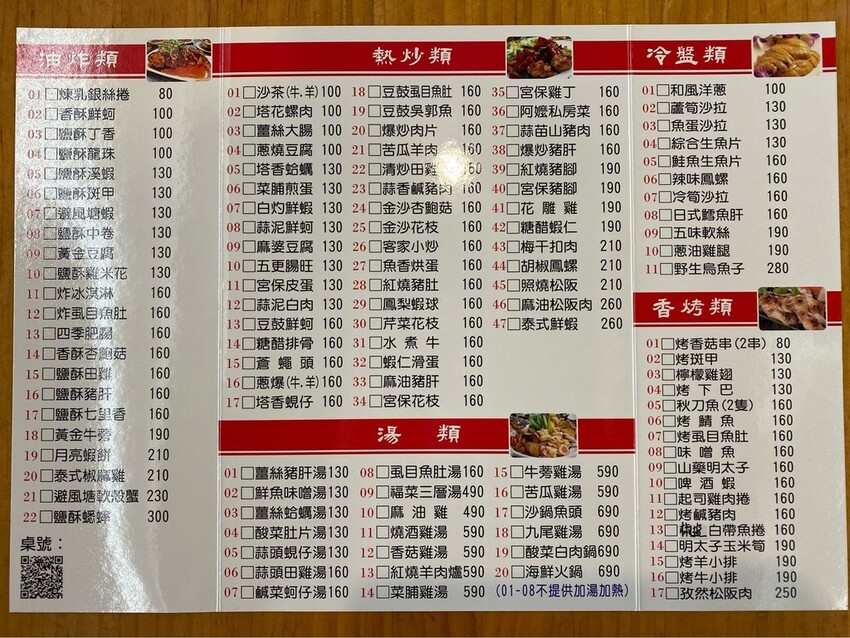 油炸類
01□煉乳銀絲捲 80
02□香酥鮮蚵 100
03□鹽酥丁香 100
04□鹽酥龍珠 100
05□鹽酥溪蝦 130
06□鹽酥斑甲 130
07□避風塘蝦 130
08□鹽酥中卷 130
09□黃金豆腐 130
10□鹽酥雞米花 130
11□炸冰淇淋 160
12□炸虱目魚肚 160
13□四季肥腸 160
14□香酥杏鮑菇 160
15□鹽酥田雞 160
16□鹽酥豬肝 160
17□鹽酥七里香 160
18□黃金牛蒡 190
19□月亮蝦餅 210
20□泰式椒麻雞 210
21□避風塘軟殼蟹 230
22□鹽酥蟋蟀 300
桌號：
熱炒類
01□沙茶(牛.羊)100
02□塔花螺肉 100
03□薑絲大腸 100
04□蔥燒豆腐 100
05□塔香蛤蠣 130
06□菜脯煎蛋 130
07□白灼鮮蝦 130
08□蒜泥鮮蚵 130
09□麻婆豆腐 130
10□五更腸旺 130
11□宮保皮蛋 130
12□蒜泥白肉 130
13□豆鼓鮮蚵 160
14□糖醋排骨 160
15□蒼蠅頭 160
16□蔥爆(牛.羊)160
17□塔香蜆仔 160
18□豆鼓虱目魚肚 160
19□豆鼓吳郭魚 160
20□爆炒肉片 160
21□苦瓜羊肉 160
22□清炒田雞 160
23□蒜香鹹豬肉 160
24□金沙杏鮑菇 160
25□金沙花枝 160
26□客家小炒 160
27□魚香烘蛋 160
28□紅燒豬肚 160
29□鳳梨蝦球 160
30□芹菜花枝 160
31□水煮牛 160
32□蝦仁滑蛋 160
33□麻油豬肝 160
34□宮保花枝 160
35□宮保雞丁 160
36□阿嬤私房菜 160
37□蒜苗山豬肉 160
38□爆炒豬肝 160
39□紅燒豬腳 190
40□宮保豬腳 190
41□花雕雞 190
42□糖醋蝦仁 190
43□梅干扣肉 210
44□胡椒鳳螺 210
45□照燒松阪 210
46□麻油松阪肉 260
47□泰式鮮蝦 260
湯類
01□薑絲豬肝湯130
02□鮮魚味噌湯130
03□薑絲蛤蠣湯130
04□酸菜肚片湯130
05□蒜頭蜆仔湯130
06□蒜頭田雞湯160
07□鹹菜蚵仔湯160
08□虱目魚肚湯160
09□福菜三層湯490
10□麻油雞 490
11□燒酒雞湯 590
12□香菇雞湯 590
13□紅燒羊肉爐590
14□菜脯雞湯 590
15□牛蒡雞湯 590
16□苦瓜雞湯 590
17□沙鍋魚頭 690
18□九尾雞湯 690
19□酸菜白肉鍋690
20□海鮮火鍋 690
(01-08不提供加湯加熱)
冷盤類
01□和風洋蔥 100
02□蘆筍沙拉 130
03□魚蛋沙拉 130
04□綜合生魚片 130
05□鮭魚生魚片 160
06□辣味鳳螺 160
07□冷筍沙拉 160
08□日式鱈魚肝 160
09□五味軟絲 190
10□蔥油雞腿 190
11□野生烏魚子 280
香烤類
01□烤香菇串(2串) 80
02□烤斑甲 130
03□檸檬雞翅 130
04□烤下巴 130
05□秋刀魚(2隻) 160
06□烤鯖魚 160
07□烤虱目魚肚 160
08□味噌魚 160
09□山藥明太子 160
10□啤酒蝦 160
11□起司雞肉捲 160
12□烤鹹豬肉 160
13□白帶魚捲 160
14□明太子玉米筍 190
15□烤羊小排 190
16□烤牛小排 190
17□孜然松阪肉 250